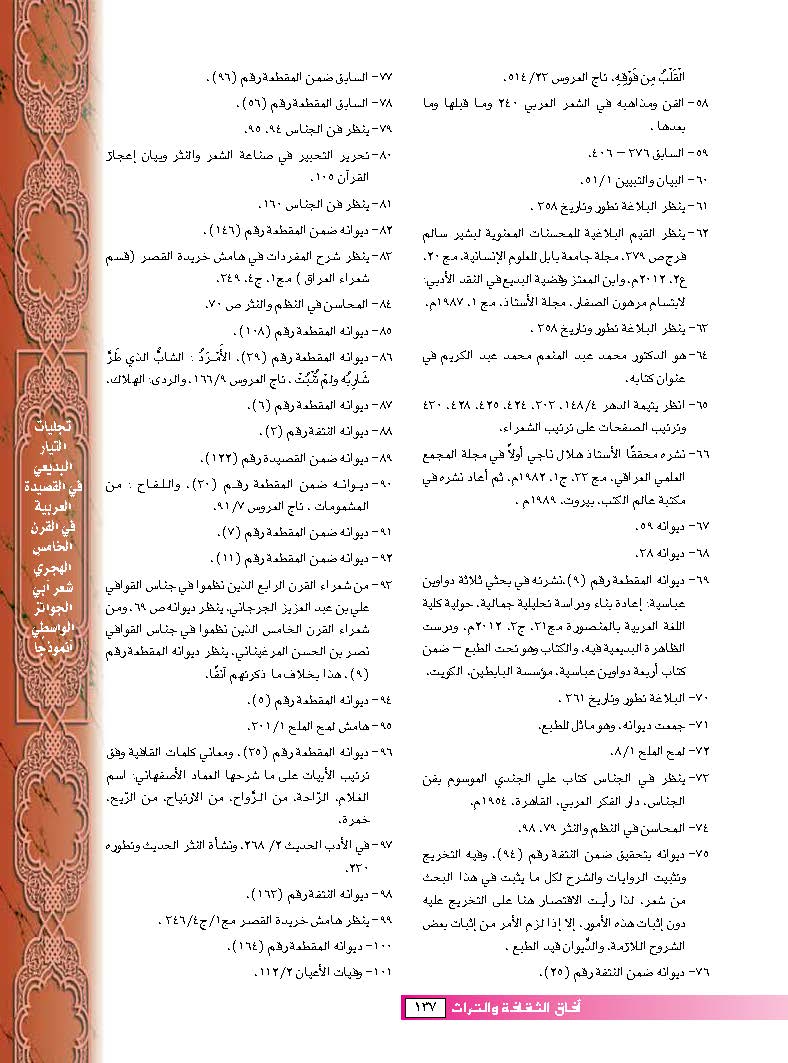 الْقَلْبُ مِن فَوْقِهِ، تاج العروس ٥١٤/٢٣.
٥٨- الفن ومذاهبه في الشعر العربي ٢٤٠ وما قبلها وما
بعدها.
٥٩- السابق ٢٧٦ – ٤٠٦.
٦٠- البيان والتبيين ٥١/١.
٦١- ينظر البلاغة تطور وتاريخ ٣٥٨.
٦٢- ينظر القيم البلاغية للمحسنات المعنوية لبشير سالم
فرج ص ٣٧٩، مجلة جامعة بابل للعلوم الإنسانية، مج ٢٠،
ع٢، ٢٠١٢م، وابن المعتز وقضية البديع في النقد الأدبي:
لابتسام مرهون الصفار، مجلة الأستاذ، مج ١، ١٩٨٧م.
٦٣- ينظر البلاغة تطور وتاريخ ٣٥٨.
٦٤- هو الدكتور محمد عبد المنعم محمد عبد الكريم في
عنوان كتابه.
٦٥- انظر يتيمة الدهر ١٤٨/٤، ٣٠٣، ٤٢٤، ٤٢٥، ٤٢٨، ٤٣٠
وترتيب الصفحات على ترتيب الشعراء.
٦٦- نشره محققًا الأستاذ هلال ناجي أولاً في مجلة المجمع
العلمي العراقي، مج ٣٣، ج١، ١٩٨٢م، ثم أعاد نشره في
مكتبة عالم الكتب، بيروت، ١٩٨٩م.
٦٧- ديوانه ٥٩.
٦٨- ديوانه ٣٨.
٦٩- ديوانه المقطعة رقم (٩)،نشرته في بحثي ثلاثة دواوين
عباسية: إعادة بناء ودراسة تحليلية جمالية، حولية كلية
اللغة العربية بالمنصورة مج٣١، ج٢، ٢٠١٢م، ودرست
الظاهرة البديعية فيه، والكتاب وهو تحت الطبع – ضمن
كتاب أربعة دواوين عباسية، مؤسسة البابطين، الكويت.
٧٠- البلاغة تطور وتاريخ ٣٦١.
٧١- جمعت ديوانه، وهو ماثل للطبع.
٧٢- لمح الملح ٨/١.
٧٣- ينظر في الجناس كتاب علي الجندي الموسوم بفن
الجناس، دار الفكر العربي، القاهرة، ١٩٥٤م.
٧٤- المحاسن في النظم والنثر ٧٩، ٩٨.
٧٥- ديوانه بتحقيق ضمن النتفة رقم (٩٤)، وفيه التخريج
وتثبيت الروايات والشرح لكل ما يثبت في هذا البحث
من شعر، لذا رأيت الاقتصار هنا على التخريج عليه
دون إثبات هذه الأمور، إلا إذا لزم الأمر من إثبات بعض
الشروح اللازمة، والدِّيوان قيد الطبع.
٧٦- ديوانه ضمن النتفة رقم (٢٥).
٧٧- السابق ضمن المقطعة رقم (٩٦).
٧٨- السابق المقطعة رقم (٥٦).
٧٩- ينظر فن الجناس ٩٤، ٩٥.
٨٠- تحرير التحبير في صناعة الشعر والنثر وبيان إعجاز
القرآن ١٠٥.
٨١- ينظر فن الجناس ١٦٠.
٨٢- ديوانه ضمن المقطعة رقم (١٤٦).
٨٣- ينظر شرح المفردات في هامش خريدة القصر (قسم
شعراء العراق ) مج١، ج٤، ٣٤٩.
٨٤- المحاسن في النظم والنثر ص ٧٠.
٨٥- ديوانه المقطعة رقم (١٠٨).
٨٦- ديوانه المقطعة رقم (٣٩)، الأَمْرَدُ : الشابُّ الذي طَرَّ
شَارِبُه ولمْ تَنْبُتْ ، تاج العروس ١٦٦/٩، والردى: الهلاك.
٨٧- ديوانه المقطعة رقم (٦).
٨٨- ديوانه النتفة رقم (٣).
٨٩- ديوانه ضمن القصيدة رقم (١٢٢).
٩٠- ديوانه ضمن المقطعة رقم (٣٠)، واللفاح : من
المشمومات ، تاج العروس ٩١/٧.
٩١- ديوانه ضمن المقطعة رقم (٧).
٩٢- ديوانه ضمن المقطعة رقم (١١).
٩٣- من شعراء القرن الرابع الذين نظموا في جناس القوافي
علي بن عبد العزيز الجرجاني، ينظر ديوانه ص ٦٩، ومن
شعراء القرن الخامس الذين نظموا في جناس القوافي
نصر بن الحسن المرغيناني، ينظر ديوانه المقطعة رقم
(٩)، هذا بخلاف ما ذكرتهم آنفًا.
٩٤- ديوانه المقطعة رقم (٥).
٩٥- هامش لمح الملح ٣٠١/١.
٩٦- ديوانه المقطعة رقم (٣٥)، ومعاني كلمات القافية وفق
ترتيب الأبيات على ما شرحها العماد الأصفهاني: اسم
الغلام، الرّاحة، من الرَّواح، من الارتياح، من الرّيح،
خمرة.
٩٧- في الأدب الحديث ٢/ ٢٦٨، ونشأة النثر الحديث وتطوره
٢٣٠.
٩٨- ديوانه النتفة رقم (١٦٣).
٩٩- ينظر هامش خريدة القصر مج١/ج٣٤٦/٤.
١٠٠- ديوانه المقطعة رقم (١٦٤).
١٠١- وفيات الأعيان ١١٢/٢.
تجليات
التيار
البديعي
في القصيدة
العربية
في القرن
الخامس
الهجري
شعر أبي
الجوائز
الواسطي
أنموذجا
آفاق الثقافة والتراث ١٣٧